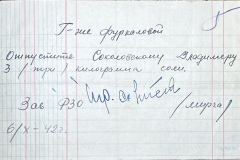 Г-же Фуркаловой
Отпустите Соколовскому Владимеру
3 (три) килограмма соли.
Зав ФЗО
/мурга/
6/X-42г.